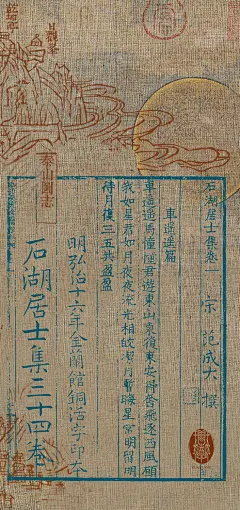 日觀峯
泰山圖志
石湖居士集卷一
宋 范成大 撰
車遥遥篇
車遥遥馬憧憧君遊東山東復東安得奮飛逐西風願
我如星君如月夜夜流光相皎潔月暫晦星常明留明
待月復三五共盈盈
明弘治十六年金蘭館銅活字印本
石湖居士集三十四本